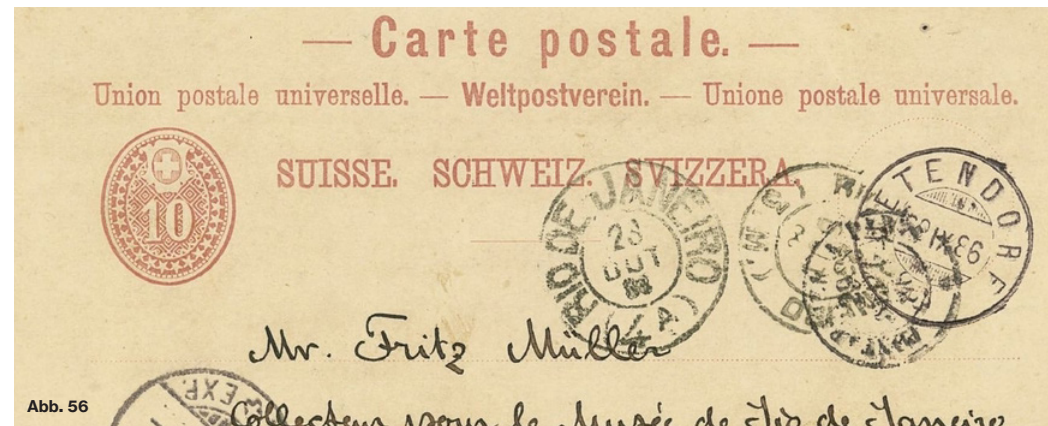 — Carte postale. —
Union postale universelle. — Weltpostverein. — Unione postale universale.
10
SUISSE. SCHWEIZ. SVIZZERA.
RIO DE JANEIRO
23
OUT
(7A)
Mr. Fritz Müller
& EXP.
Abb. 56
Collecteur pour le Musée de Rio de Janeiro